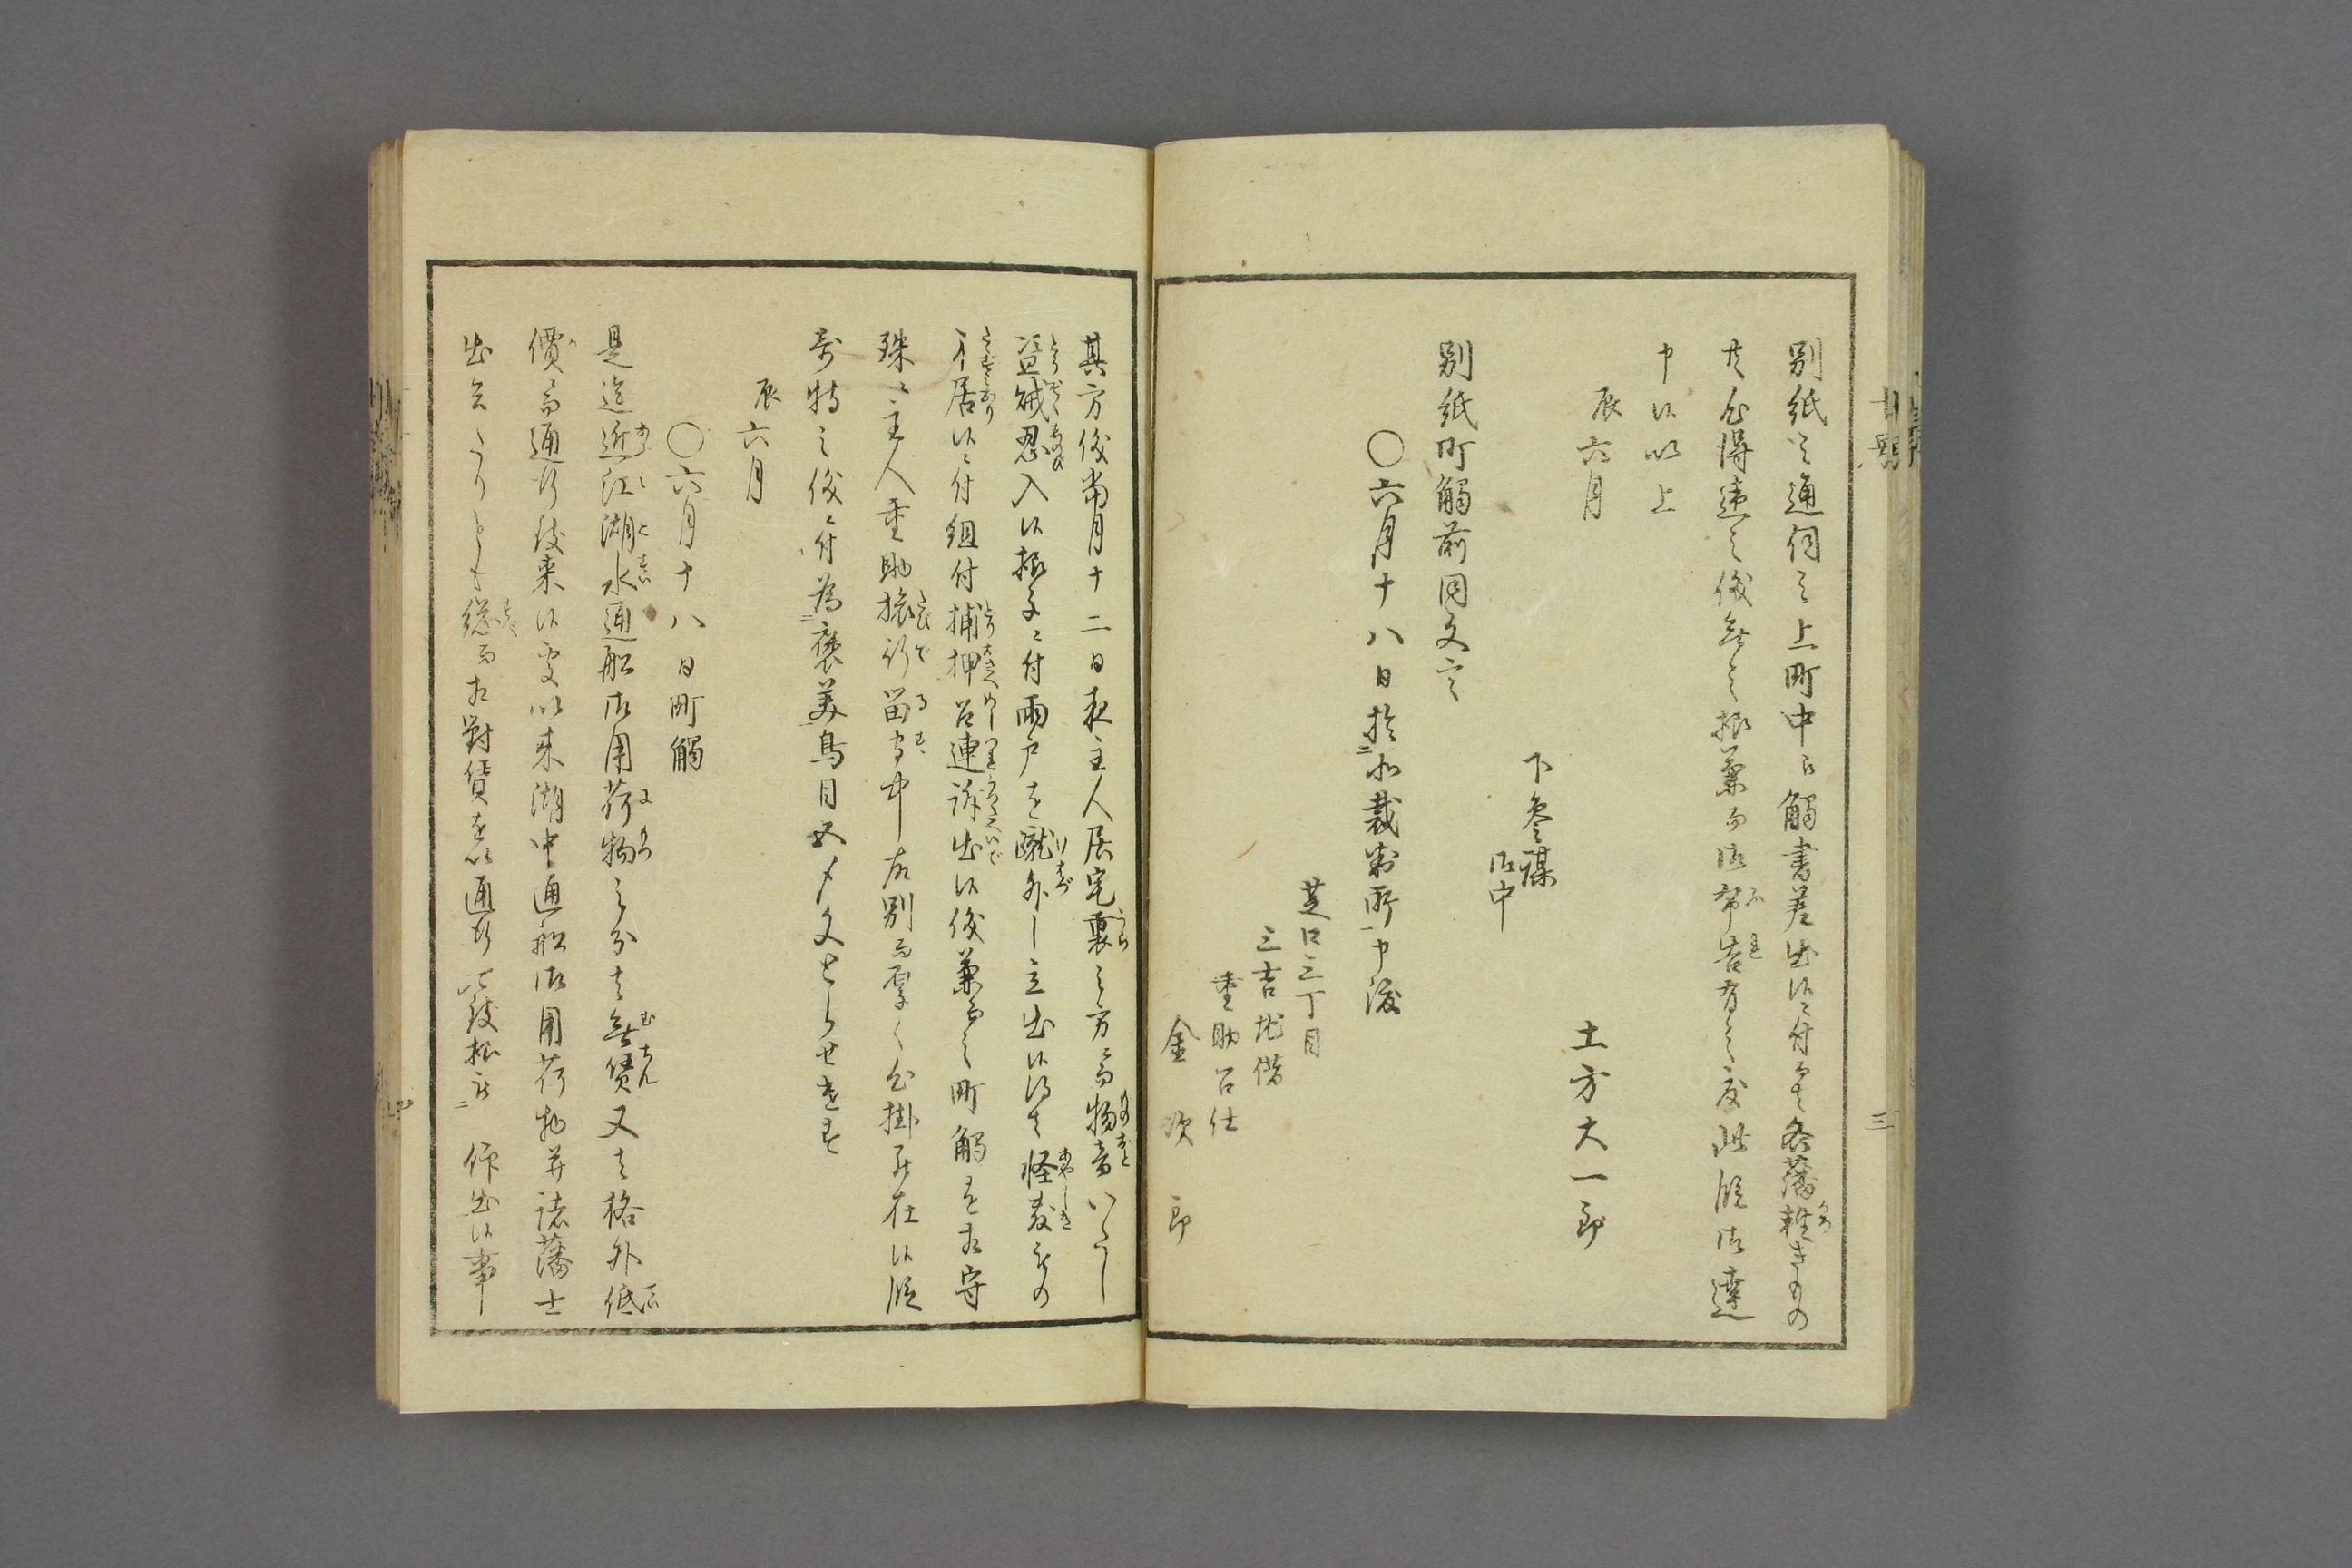 別紙之通伺之上町中江觸書差出候ニ付而者各藩軽きもの
共心得違之儀無之様兼而御布告有之度此段御達
申候以上
辰六月
土方大一郎
下参謀
御中
別紙町觸前同文言
〇六月十八日於ニ市裁判所申渡
芝口三丁目
三吉地借
重助召仕
金次郎
三
其方儀當月十二日夜主人居宅裏之方ニ而物音いたし
盗賊忍入候様子ニ付雨戸を蹴外し立出候得者怪敷もの
彳居候ニ付組付捕押召連訴出候儀兼而之町觸を相守
殊ニ主人重助旅行留守中右別而厚く心掛罷在候段
奇特之儀ニ付為ニ褒美鳥目五〆文とらせ遣す
辰六月
〇六月十八日町觸
是迄近江湖水通船御用荷物之分者無賃又者格外低
價ニ而通行致来候処以来湖中通船御用荷物并諸藩士
出会たりとも総而相對賃を以通行可致様被ニ 仰出候事